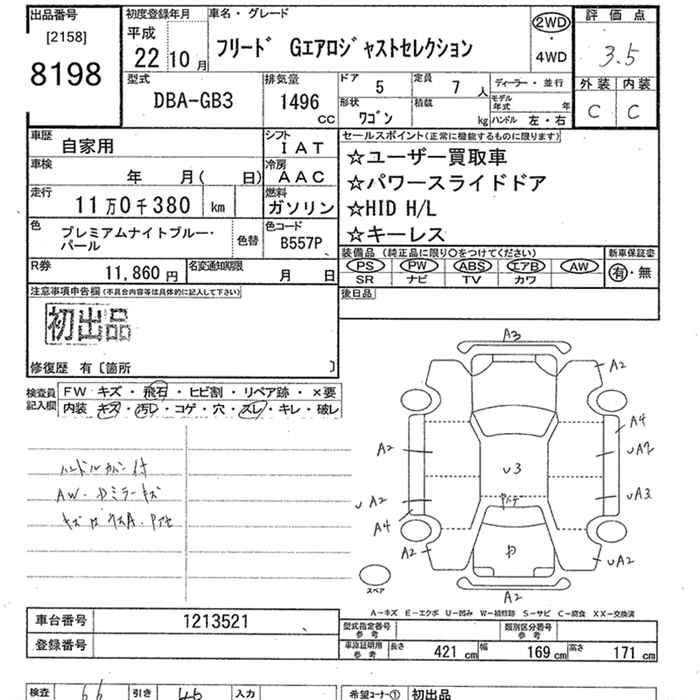 出品番号
[2158]
8198
初度登録年月
平成
22 10月
車名・グレード
フリード Gエアロジャストセレクション
2WD
・
4WD
評価点
3.5
外装 内装
C C
型式
DBA-GB3
排気量
1496
CC
ドア 5
定員 7 人
形状 ワゴン
積載 kg
ディーラー・並行
モデル年式 年
ハンドル 左・右
車歴 自家用
シフト IAT
車検 年 月( 日)
冷房 AAC
走行 11万0千380 km
燃料 ガソリン
色 プレミアムナイトブルー・パール
色替
色コード B557P
R券 11,860円
名変通知期限 月 日
セールスポイント(正常に機能するものに限ります)
☆ユーザー買取車
☆パワースライドドア
☆HID H/L
☆キーレス
装備品 (純正品に限り○をつけてください)
新車保証書
PS PW ABS エアB AW
有・無
SR ナビ TV カワ
後日品
注意事項申告欄(不具合内容等は具体的に記入して下さい)
初出品
修復歴 有〔箇所 〕
検査員記入欄
FW キズ・飛石・ヒビ割・リペア跡・×要
内装 キズ・汚レ・コゲ・穴・スレ・キレ・破レ
A3
A2
A4
UA2
A2
U3
UA3
UA2
A4
A2
UA2
A2
スペア
A-キズ E-エクボ U-凹み W-補修跡 S-サビ C-腐食 XX-交換済
車台番号 1213521
登録番号
型式指定番号 参考
類別区分番号 参考
車庫証明用 参考
長さ 421 cm
幅 169 cm
高さ 171 cm
検査
引き
入力
希望コーナー① 初出品